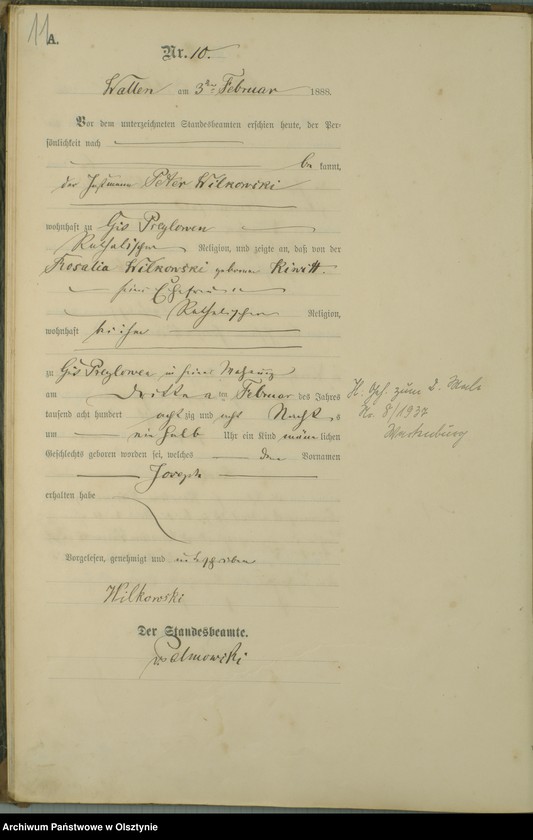 11
A.
Nr. 10.
Wallen am 3ten Februar 1888.
Vor dem unterzeichneten Standesbeamten erschien heute, der Per-
sönlichkeit nach
be kannt,
der Instmann Peter Wilkowski
wohnhaft zu Gut Przylowen
Katholischer Religion, und zeigte an, daß von der
Rosalia Wilkowski geborene Kiwitt.
seine Ehefrau
Katholischer Religion,
wohnhaft bei ihm
zu Gut Przylowen in seiner Wohnung
am Dritten Februar des Jahres
tausend acht hundert acht zig und acht Nachts
um ein halb Uhr ein Kind männlichen
Geschlechts geboren worden sei, welches den Vornamen
Joseph
erhalten habe
Vorgelesen, genehmigt und unterschrieben
Wilkowski
Der Standesbeamte.
Palmowski
zum 2. Male
No. 8/1937
Wartenburg
Archiwum Państwowe w Olsztynie